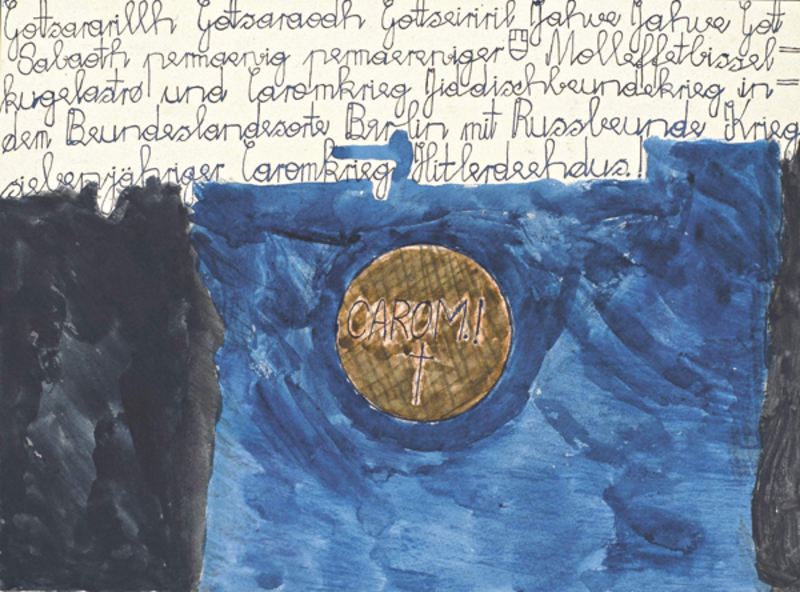 Gotsararillh Gotsaraodh Gotseiriril Jahwe Jahwe Got
Sabaoth permaenig permaereniger Molleffetbissel=
kugelastro und Caromkrieg Jiddischbeundekrieg in=
dem Beundeslandesorte Berlin mit Russbeunde Krieg
siebenjähriger Caromkrieg Hitlerdeehdus.!
CAROM.!